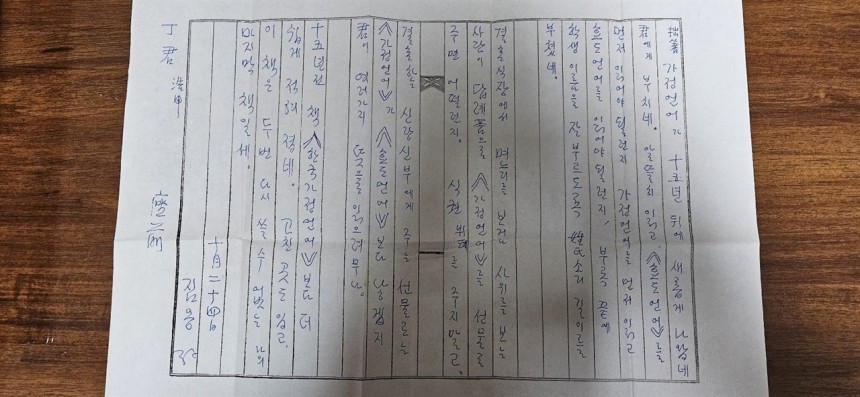 拙著 가정언어가 十五년 뒤에 새롭게 나왔네
君에게 부치네. 알뜰히 읽고, 《효도언어》를
먼저 읽어야 될런지 가정언어를 먼저 읽고
효도언어를 읽어야 될런지, 부록 끝에
학생 이름을 잘 부르도록 姓氏소리 길이를
부쳤네.
결혼식장에서 며느리를 본 집 사위를 보는
사람이 답례품으로 《가정언어》를 선물로
주면 어떨런지. 식권 를 주지 말고.
결혼하는 신랑 신부에게 주는 선물로는
《가정언어》가 《효도언어》보다 낫겠지
君이 여러가지 뜻으로 읽으려무나.
十五년전 책 《한국가정언어》보다 더
쉽게 적혀 졌네. 고친 곳도 있고.
이 책은 두번 다시 쓸 수 없는 나의
마지막 책일세.
十月二十四日
丁君 浩